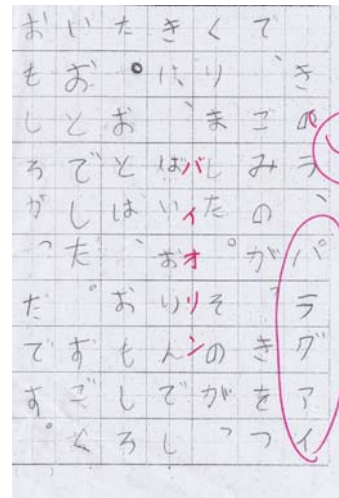 きのラ、パラグアイ
で、ごみの、がっきをつ
くりました。そのがっ
きは、ばいおりんでし
バイオリン
た。おとは、おもしろ
いおとでした。すごく
おもしろがったです。